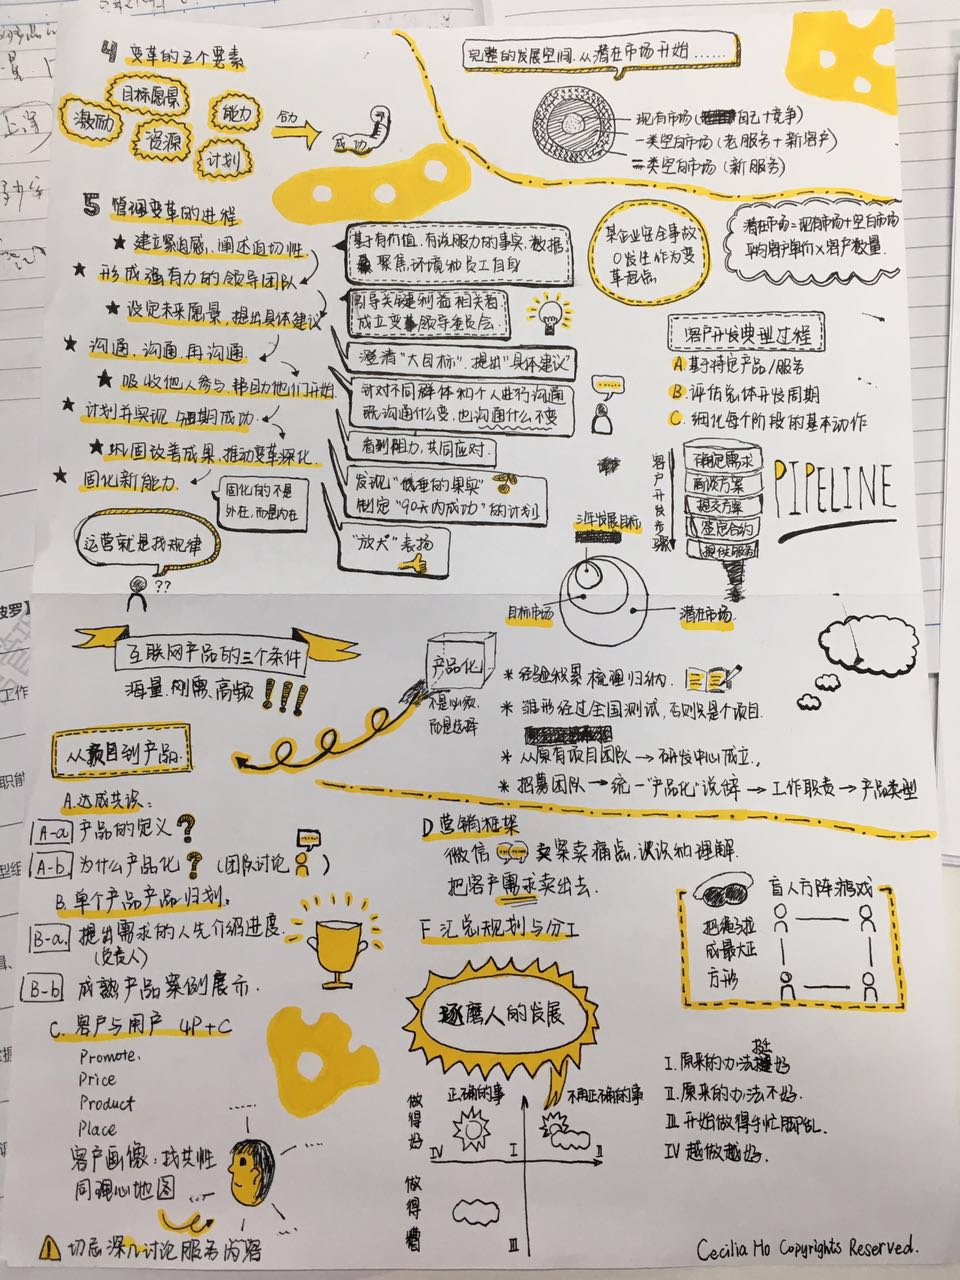 4 变革的五个要素
目标愿景
激励
资源
能力
计划
合力
成功
完整的发展空间,从潜在市场开始......
现有市场(自己+竞争)
一类空白市场(老服务+新客户)
二类空白市场(新服务)
潜在市场=现有市场+空白市场
平均客户单价×客户数量.
某企业安全事故
0发生作为变
革起点
5 管理变革的进程
★ 建立紧迫感,阐述迫切性
★ 形成强有力的领导团队
★ 设定未来愿景,提出具体建议
★ 沟通,沟通,再沟通.
★ 吸收他人参与,帮助他们开始.
★ 计划并实现短期成功
★ 巩固改善成果,推动变革深化.
★ 固化新能力.
基于有价值,有说服力的事实,数据
聚焦,环境和员工自身
引导关键利益相关者
成立变革领导委员会.
澄清“大目标”,提出“具体建议”
针对不同群体和个人进行沟通
既沟通什么变,也沟通什么不变
看到阻力,共同应对.
发现“低垂的果实”
制定“90天内成功”的计划
“放大”表扬
固化的不是
外在,而是内在
运营就是找规律
??
客户开发典型过程
A.基于特定产品/服务
B.评估总体开发周期
C.细化每个阶段的基本动作
客户开发步骤
确定需求
商谈方案
提交方案
签定合约
提供服务
PIPELINE
三年发展目标
目标市场
潜在市场.
互联网产品的三个条件
海量,刚需,高频 !!!
产品化
不是必须,
而是选择
* 经验积累,梳理归纳.
* 雏形经过全国测试,否则只是个项目.
* 从原有项目团队 → 研发中心成立.
* 招募团队 → 统一“产品化”说辞 → 工作职责 → 产品类型
从项目到产品.
A.达成共识:
A-a 产品的定义?
A-b 为什么产品化?(团队讨论)
B.单个产品产品归划:
B-a. 提出需求的人先介绍进度.
(负责人)
B-b 成熟产品案例展示.
C. 客户与用户 4P+C
Promote.
Price
Product
Place
客户画像:找共性
同理心地图
! 切忌深入讨论服务内容
D 营销框架
微信 卖案卖痛点,谈谈和理解.
把客户需求卖出去.
F 汇总规划与分工
盲人方阵游戏
把绳子拉
成最大正
方形
琢磨人的发展
做得好
做得糟
正确的事
不用正确的事
IV
I
II
III
I.原来的办法挺好
II.原来的办法不好.
III.开始做得手忙脚乱.
IV 越做越好.
Cecilia Ho Copyrights Reserved.